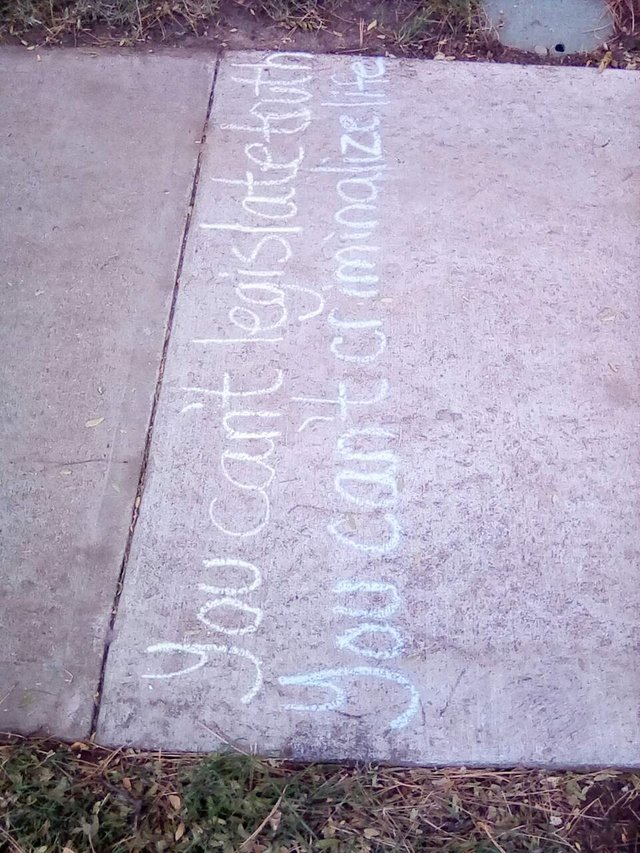 You can't legislate truth
You can't criminalize life